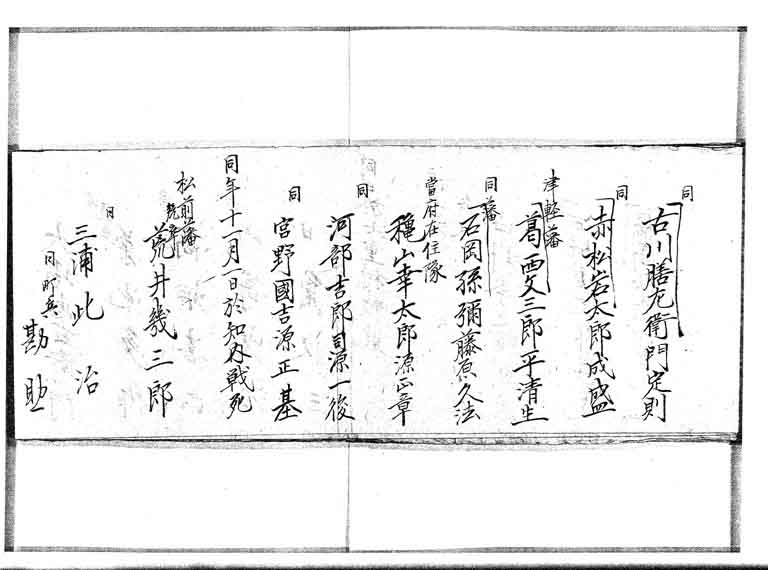 同
古川膳左衛門定則
同
赤松岩太郎成盛
津軽藩
葛西文三郎平清生
同藩
石岡孫彌藤原久法
當府在住隊
穐山幸太郎源正章
同
河部吉郎司源一後
同
宮野國吉源正基
同年十一月一日於知内戦死
松前藩
荒井幾三郎
同
三浦此治
同町兵
勘助